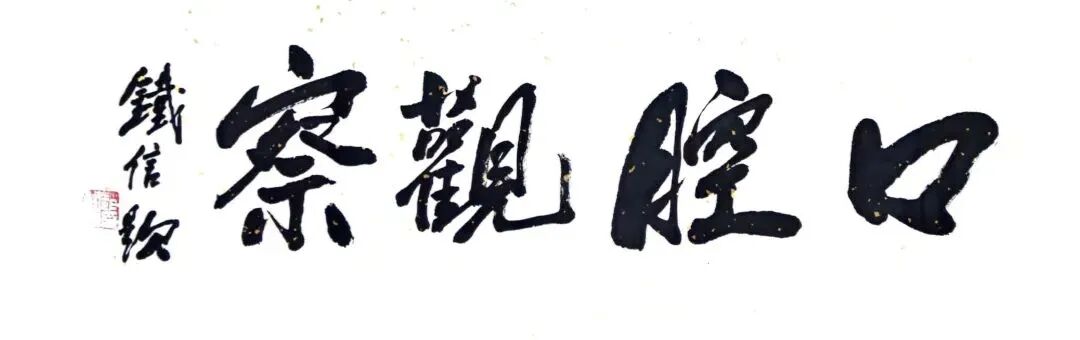 口腔觀察
鐵信